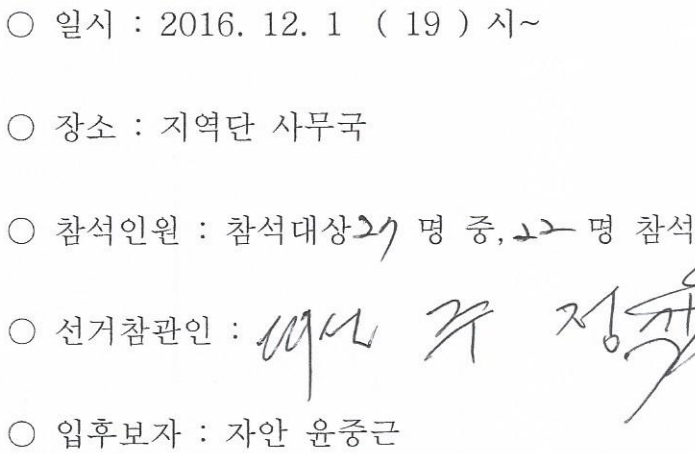 ○ 일시 : 2016. 12. 1 ( 19 ) 시~
○ 장소 : 지역단 사무국
○ 참석인원 : 참석대상 27 명 중, 22 명 참석
○ 선거참관인 : 주 정
○ 입후보자 : 자안 윤중근